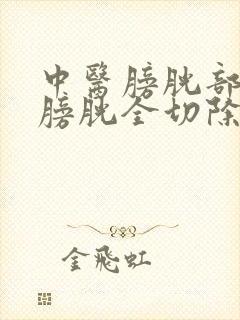 中醫膀胱部
膀胱全切除
金飛虹